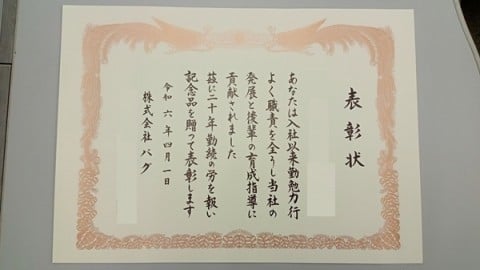 表彰状
あなたは入社以来勤勉力行
よく職責を全うし当社の
発展と後輩の育成指導に
貢献されました
茲に二十年勤続の労を報い
記念品を贈って表彰します
令和六年四月一日
株式会社バグ